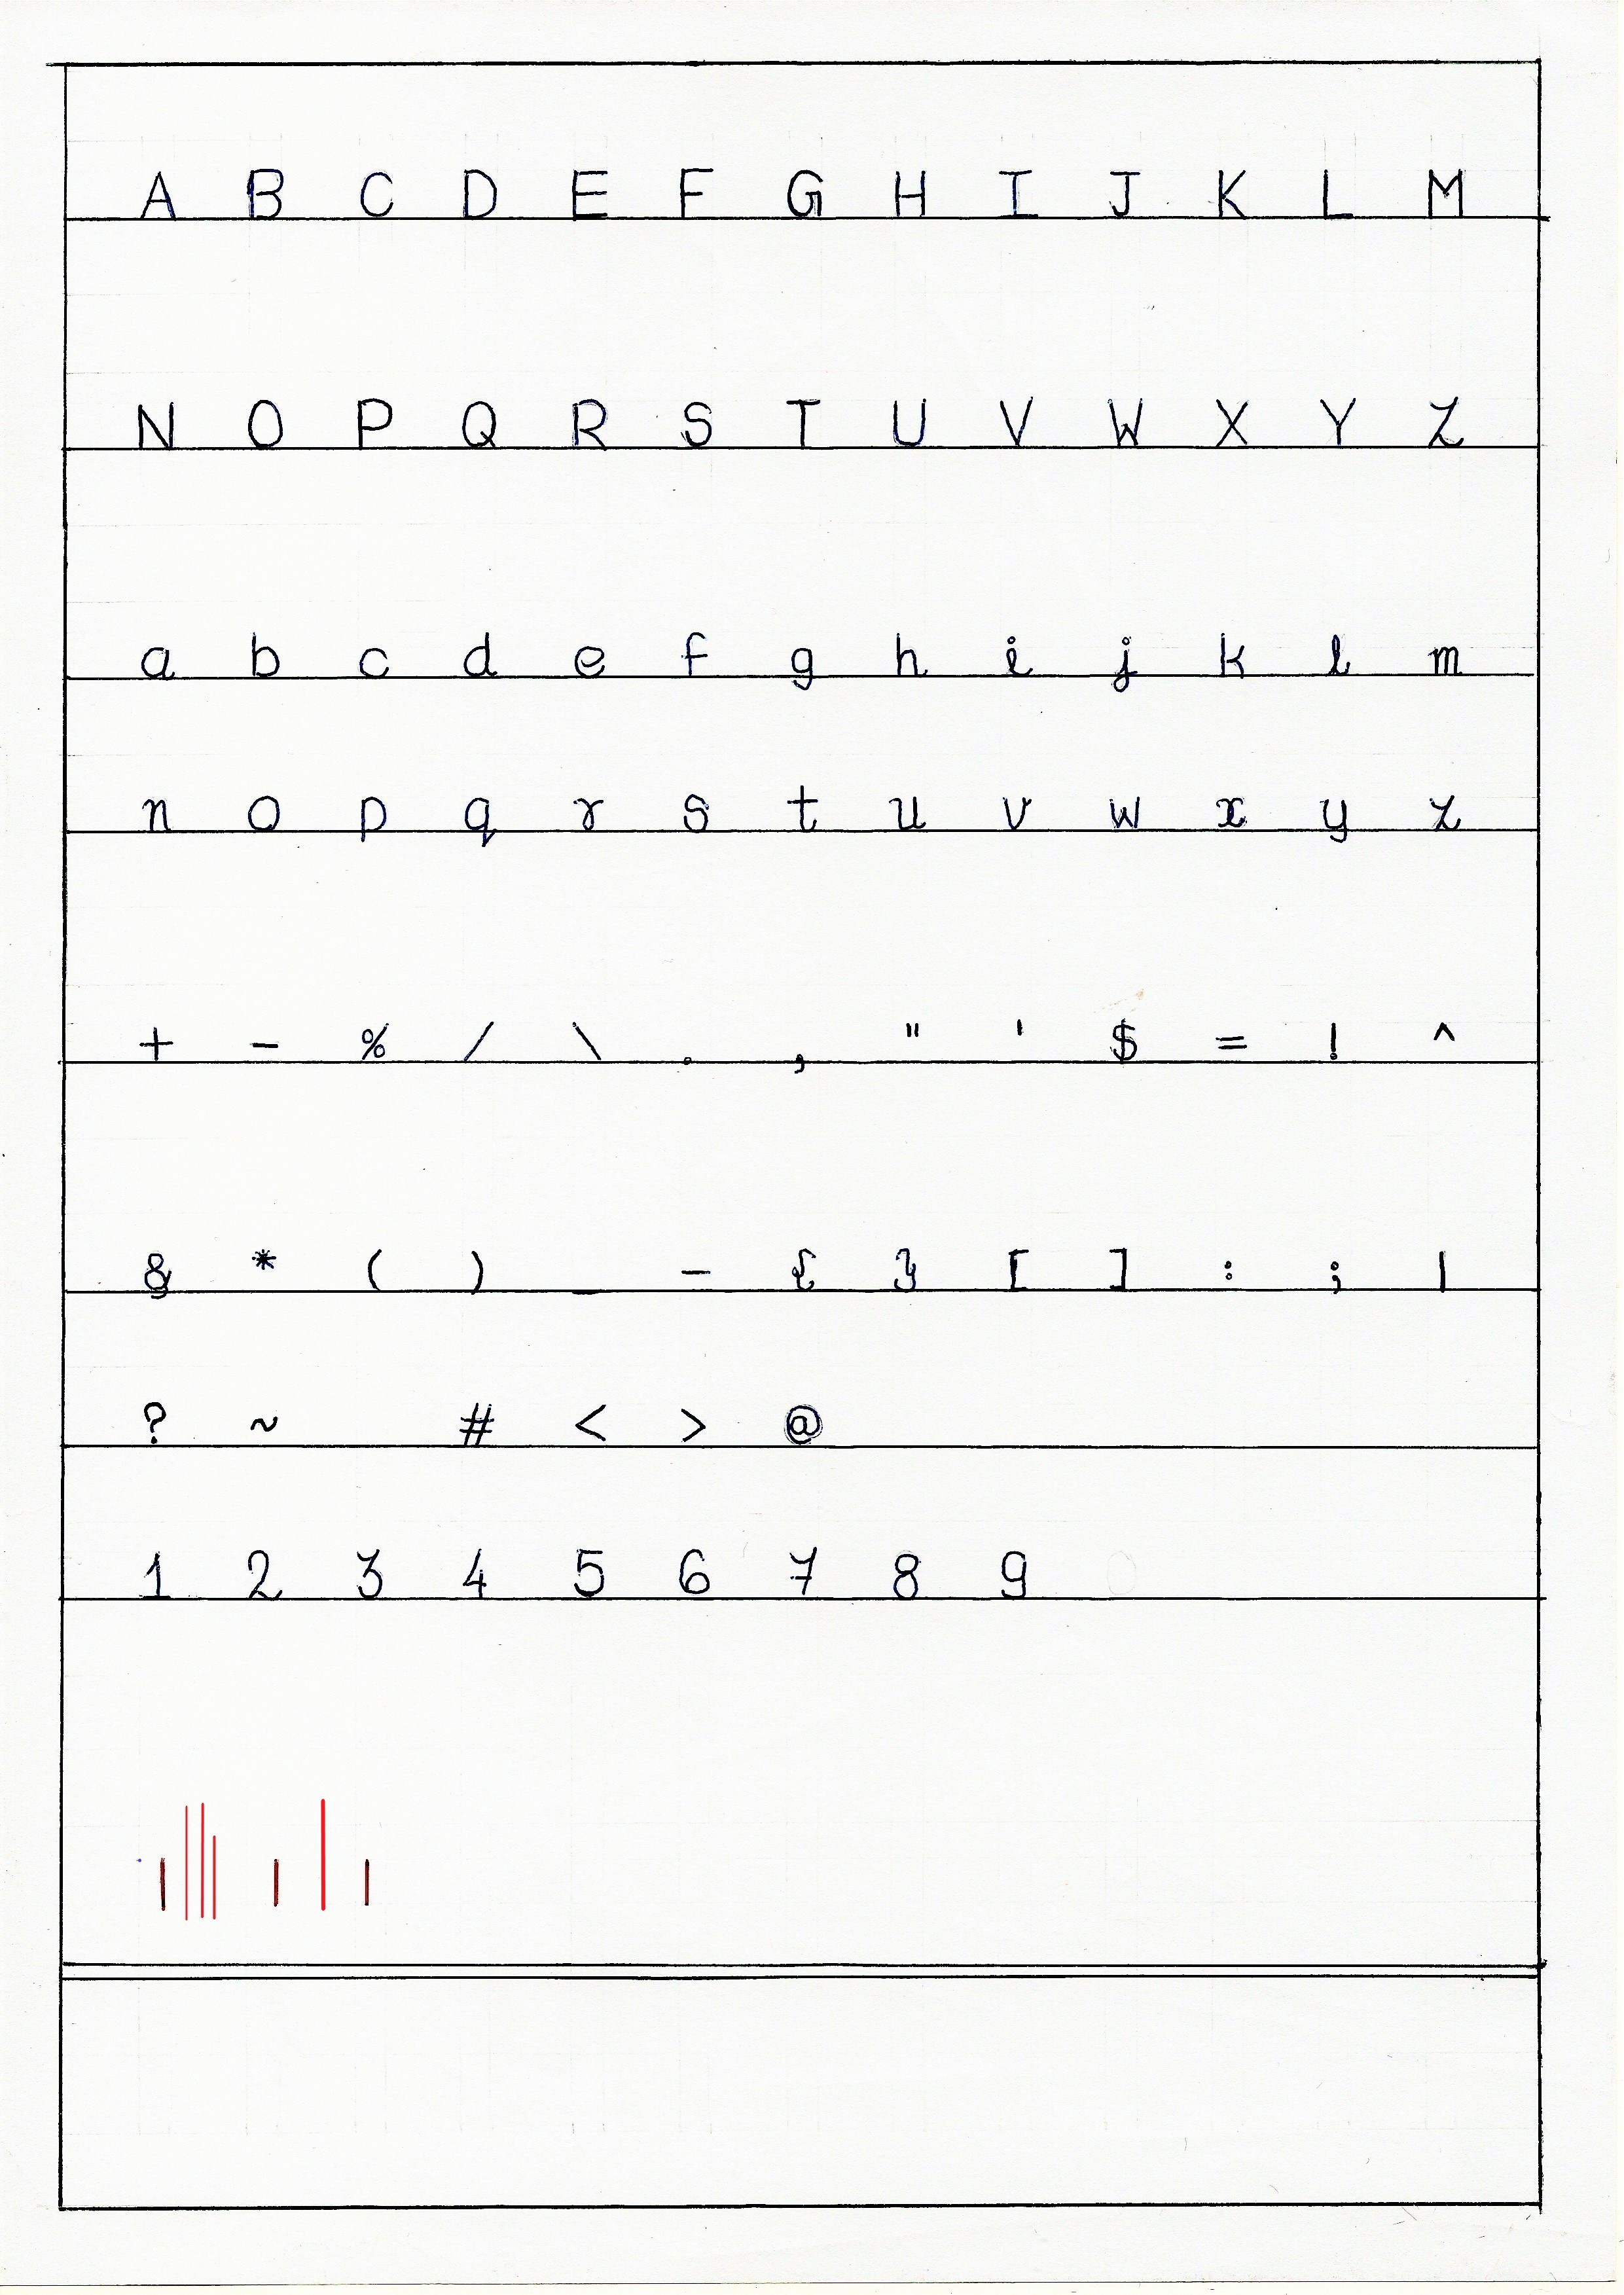 A B C D E F G H I J K L M
N O P Q R S T U V W X Y Z
a b c d e f g h i j k l m
n o p q r s t u v w x y z
+ - % / \ . , " ' $ = ! ^
& * ( ) _ - { } [ ] : ; |
? ~ # < > @
1 2 3 4 5 6 7 8 9 0